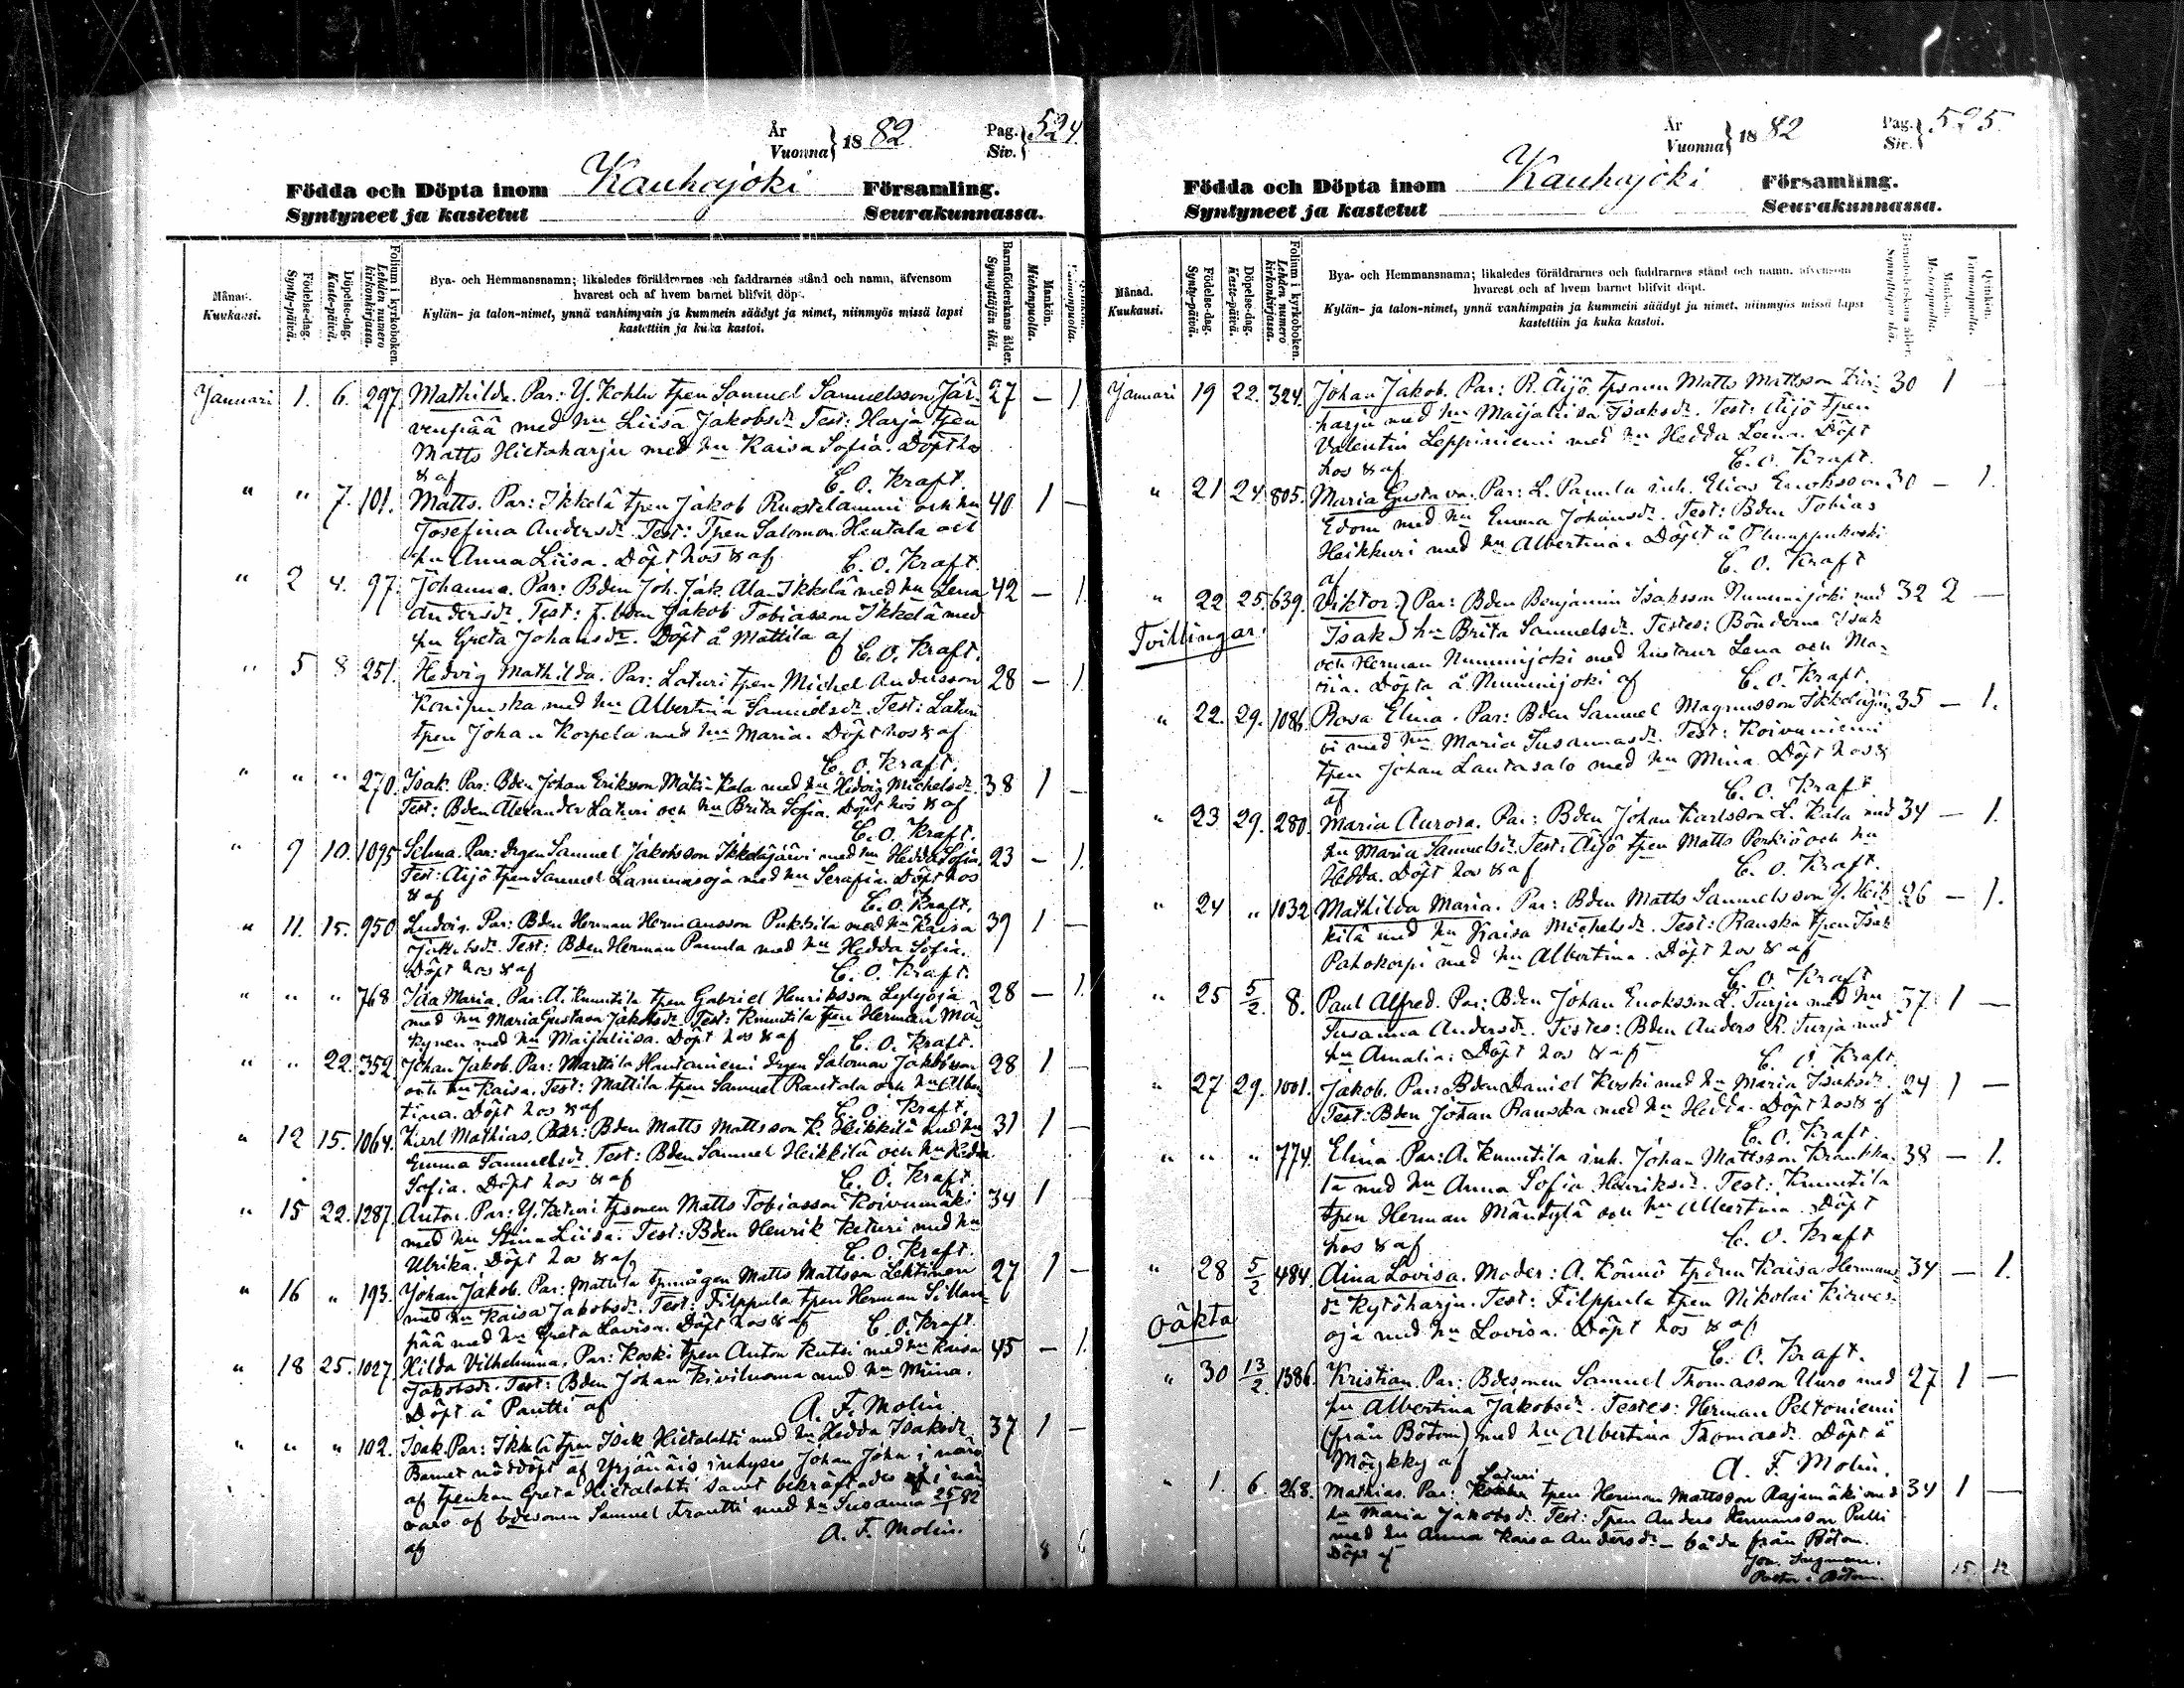 År
Vuonna} 18 82 Pag.
Siv.} 524.
Födda och Döpta inom Kauhajoki Församling.
Syntyneet ja kastetut Seurakunnassa.
Månad.
Kuukausi.
Födelse-dag.
Synty-päivä.
Döpelse-dag.
Kaste-päivä.
Folium i kyrkoboken.
Lehden numero kirkonkirjassa.
Bya- och Hemmansnamn; likaledes föräldrarnes och faddrarnes stånd och namn, äfvensom
hvarest och af hvem barnet blifvit döpt.
Kylän- ja talon-nimet, ynnä vanhimpain ja kummein säädyt ja nimet, niinmyös missä lapsi
kastettiin ja kuka kastoi.
Barnaföderskans ålder.
Synnyttäjän ikä.
Mankön.
Miehenpuolta.
Januari 1. 6. 297 Mathilda. Par: Y. Kohlu tpen Samuel Samuelsson Jär- 27 – 1.
venpää med hu Liisa Jakobsdr. Test: Harja tpen
Matts Hietaharju med hu Kaisa Sofia. Döpt hos
& af C. O. Kraft.
" " 7. 101. Matts. Par: Ikkelä tpen Jakob Ruostelammi och hu 40 1 –
Josefina Andersdr. Test: Tpen Salomon Hautala och
hu Anna Liisa. Döpt hos & af C. O. Kraft.
" 2 4. 97. Johanna. Par: Bden Joh. Jak. Ala-Ikkelä med hu Lena 42 – 1.
Andersdr. Test: f. bden Jakob Tobiasson Ikkelä med
hu Greta Johansdr. Döpt å Mattila af C. O. Kraft.
" 5 8 251. Hedvig Mathilda. Par: Laturi tpen Michel Andersson 28 – 1.
med hu Albertina Samuelsdr. Test: Laturi
tpen Johan Korpela med hu Maria. Döpt hos & af
C. O. Kraft.
" " " 270. Isak. Par: Bden Johan Eriksson Mäki-Kala med hu Hedvig Michelsdr. 38 1 –
Test: Bden Alexander Laturi och hu Brita Sofia. Döpt hos & af
C. O. Kraft.
" 9 10. 1095 Selma. Par: Drgen Samuel Jakobsson Ikkeläjärvi med hu Hedda Sofia. 23 – 1.
Test: Äijö tpen Samuel Lamminoja med hu Serafia. Döpt hos
& af C. O. Kraft.
" 11. 15. 950 Ludvig. Par: Bden Herman Hermansson Pukkila med hu Kaisa 39 1 –
Jakobsdr. Test: Bden Herman Panula med hu Hedda Sofia.
Döpt hos & af C. O. Kraft.
" " " 768 Ida Maria. Par: A. Knuutila tpen Gabriel Henriksson Lylyoja 28 – 1.
med hu Maria Gustava Jakobsdr. Test: Knuutila tpen Herman Mä-
kynen med hu Maijaliisa. Döpt hos & af C. O. Kraft.
" " 22. 352 Johan Jakob. Par: Mattila Hautaniemi drgen Salomon Jakobsson 28 1 –
och hu Kaisa. Test: Mattila tpen Samuel Rantala och hu Alber-
tina. Döpt hos & af C. O. Kraft.
" 12 15. 1064. Karl Mathias. Par: Bden Matts Mattsson K. Heikkilä med hu 31 1 –
Emma Samuelsdr. Test: Bden Samuel Heikkilä och hu Hedda
Sofia. Döpt hos & af C. O. Kraft.
" 15 22. 1287. Anton. Par: Y. Keturi tpsonen Matts Tobiasson Koivumäki 34 1
med hu Stina Liisa. Test: Bden Henrik Keturi med hu
Ulrika. Döpt hos & af C. O. Kraft.
" 16 " 193. Johan Jakob. Par: Mattila tpmågen Matts Mattsson Lehtinen 27 1 –
med hu Kaisa Jakobsdr. Test: Filppula tpen Herman Sillan-
pää med hu Greta Lovisa. Döpt hos & af C. O. Kraft.
" 18 25. 1027. Hilda Vilhelmina. Par: Koski tpen Anton Kutsi med hu Kaisa 45 – 1.
Jakobsdr. Test: Bden Johan Kiviluoma med hu Miina.
Döpt å Pantti af A. F. Molin.
" " " 102. Isak. Par: Ikkelä tpen Isak Hietalahti med hu Hedda Isaksdr. 37 1 –
Barnet nöddöpt af Yrjänäis inhyses Johan Johans i närv.
af tpenkan Greta Hietalahti samt bekräftades i när-
varo af bdesonen Samuel Frantti med hu Susanna 25/1 82
af A. F. Molin.
8 6
År
Vuonna} 18 82 Pag.
Siv.} 525.
Födda och Döpta inom Kauhajoki Församling.
Syntyneet ja kastetut Seurakunnassa.
Månad.
Kuukausi.
Födelse-dag.
Synty-päivä.
Döpelse-dag.
Kaste-päivä.
Folium i kyrkoboken.
Lehden numero kirkonkirjassa.
Bya- och Hemmansnamn; likaledes föräldrarnes och faddrarnes stånd och namn, äfvensom
hvarest och af hvem barnet blifvit döpt.
Kylän- ja talon-nimet, ynnä vanhimpain ja kummein säädyt ja nimet, niinmyös missä lapsi
kastettiin ja kuka kastoi.
Barnaföderskans ålder.
Synnyttäjän ikä.
Mankön.
Miehenpuolta.
Qvinkön.
Vaimonpuolta.
Januari 19 22. 324. Johan Jakob. Par: R. Äijö tpsonen Matts Mattsson 30 1 –
harju med hu Maijaliisa Isaksdr. Test: Äijö tpen
Valentin Leppiniemi med hu Hedda Leena. Döpt
hos & af C. O. Kraft.
" 21 24. 805. Maria Gustava. Par: L. Panula inh. Elias Enoksson 30 – 1.
Edom med hu Emma Johansdr. Test: Bden Tobias
Heikkuri med hu Albertina. Döpt å
af C. O. Kraft
" 22 25. 639. Viktor.} Par: Bden Benjamin Isaksson Nummijoki med 32 2 –
Tvillingar. Isak} hu Brita Samuelsdr. Testes: Bönderna Isak
och Herman Nummijoki med hustrur Lena och Ma-
ria. Döpta å Nummijoki af C. O. Kraft.
" 22. 29. 1086. Rosa Elina. Par: Bden Samuel Magnusson Ikkeläjär- 35 – 1.
vi med hu Maria Susannasdr. Test: Koivuniemi
tpen Johan Lautasalo med hu Mina. Döpt hos &
af C. O. Kraft.
" 23 29. 280. Maria Aurora. Par: Bden Johan Karlsson L. Kala med 34 – 1.
hu Maria Samuelsdr. Test: Äijö tpen Matts Perkiö och hu
Hedda. Döpt hos & af C. O. Kraft.
" 24 " 1032 Mathilda Maria. Par: Bden Matts Samuelsson Y. Heik- 26 – 1.
kilä med hu Kaisa Michelsdr. Test: Ranska tpen Isak
Pahokorpi med hu Albertina. Döpt hos & af
C. O. Kraft
" 25 5/2. 8. Paul Alfred. Par: Bden Johan Enoksson L. Turja med hu 37 1 –
Susanna Andersdr. Testes: Bden Anders R. Turja med
hu Amalia. Döpt hos & af C. O. Kraft.
" 27 29. 1001. Jakob. Par: Bden Daniel Koski med hu Maria Isaksdr. 24 1 –
Test: Bden Johan Ranska med hu Hedda. Döpt hos & af
C. O. Kraft.
" " " 774. Elina. Par: A. Knuutila inh. Johan Mattsson Krankka- 38 – 1.
la med hu Anna Sofia Henriksdr. Test: Knuutila
tpen Herman Mäntylä och hu Albertina. Döpt
hos & af C. O. Kraft
" 28 5/2 484. Aina Lovisa. Moder: A. Könnö tpdrn Kaisa Hermans- 34 – 1.
Oäkta dr Kytöharju. Test: Filppula tpen Nikolai Kirves-
oja med hu Lovisa. Döpt hos & af
C. O. Kraft.
" 30 13/2. 1386. Kristian. Par: Bdesonen Samuel Thomasson Uuro med 27 1 –
hu Albertina Jakobsdr. Testes: Herman Peltoniemi
(från Bötom) med hu Albertina Thomasdr. Döpt å
Möykky af A. F. Molin.
" 1. 6. 268. Mathias. Par: Laturi tpen Herman Mattsson Rajamäki med 34 1 –
hu Maria Jakobsdr. Test: Tpen Anders Hermansson Pulli
med hu Anna Kaisa Andersdr – båda från Bötom.
Döpt af
Pastor i Bötom.
15. 12